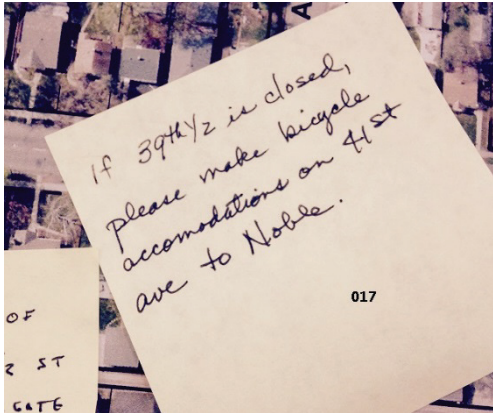 A
If 39th 1/2 is closed,
please make bicycle
accomodations on 41st
ave to Noble.
017
OF
ST
GATE